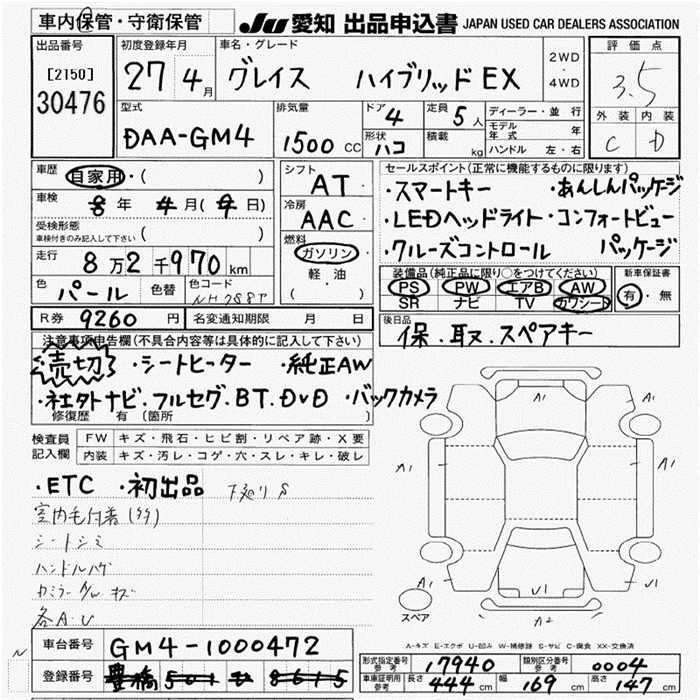 車内保管・守衛保管
JU 愛知 出品申込書 JAPAN USED CAR DEALERS ASSOCIATION
出品番号 初度登録年月 車名・グレード 評価点
[2150] 27年 4月 グレイス ハイブリッド EX 2WD・4WD 3.5
30476
型式 排気量 ドア 4 定員 5人 ディーラー・並行 外装 内装
DAA-GM4 1500 CC 形状 ハコ 積載 kg モデル年式 年 C D
ハンドル 左・右
車歴 自家用・( )
シフト AT・
セールスポイント(正常に機能するものに限ります)
車検 8年 4月(9日)
冷房 AAC・
・スマートキー ・あんしんパッケージ
受検形態 車検付きのみ記入して下さい ( )
・LEDヘッドライト・コンフォートビュー
走行 8万2千970km
燃料 ガソリン・軽油
・クルーズコントロール パッケージ
色 パール 色替 色コード NH788P
( )
装備品(純正品に限り○をつけてください) 新車保証書
PS PW エアB AW 有・無
SR ナビ TV カワシート
R券 9260円 名変通知期限 月 日
後日品 保.取.スペアキー
注意事項申告欄(不具合内容等は具体的に記入して下さい)
売切 ・シートヒーター ・純正AW
・社外ナビ・フルセグ.BT.DVD ・バックカメラ
修復歴 有(箇所 )
検査員記入欄 FW キズ・飛石・ヒビ割・リペア跡・X要
内装 キズ・汚レ・コゲ・穴・スレ・キレ・破レ
・ETC ・初出品 下廻りS
室内毛付着(多)
シートシミ
ハンドルハゲ
各A.U
A1
A1 A1
A1 U1 U1
スペア A2
A-キズ E-エクボ U-凹み W-補修跡 S-サビ C-腐食 XX-交換済
車台番号 GM4-1000472
型式指定番号 参考 17940 類別区分番号 参考 0004
登録番号 豊橋 501 む 8615
車庫証明用 参考 長さ 444cm 幅 169cm 高さ 147cm